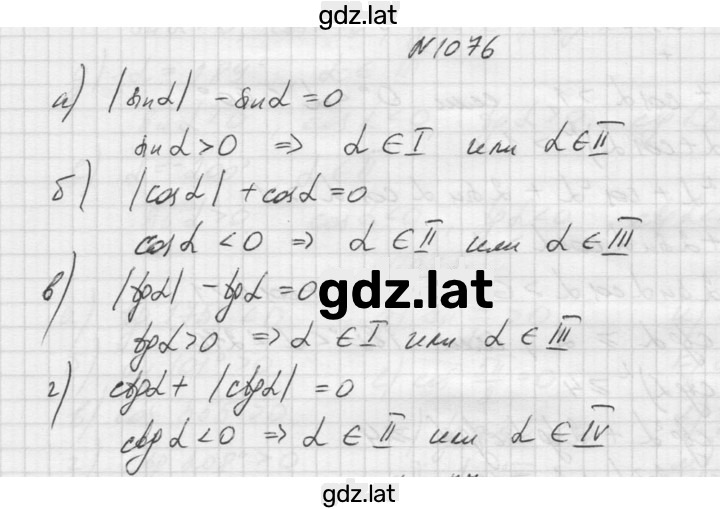 gdz.lat
N1076
а) |sinα| - sinα = 0
sinα > 0 ⇒ α ∈ I или α ∈ II
б) |cosα| + cosα = 0
cosα < 0 ⇒ α ∈ II или α ∈ III
в) |tgα| - tgα = 0
gdz.lat
tgα > 0 ⇒ α ∈ I или α ∈ III
г) ctgα + |ctgα| = 0
ctgα < 0 ⇒ α ∈ II или α ∈ IV
gdz.lat